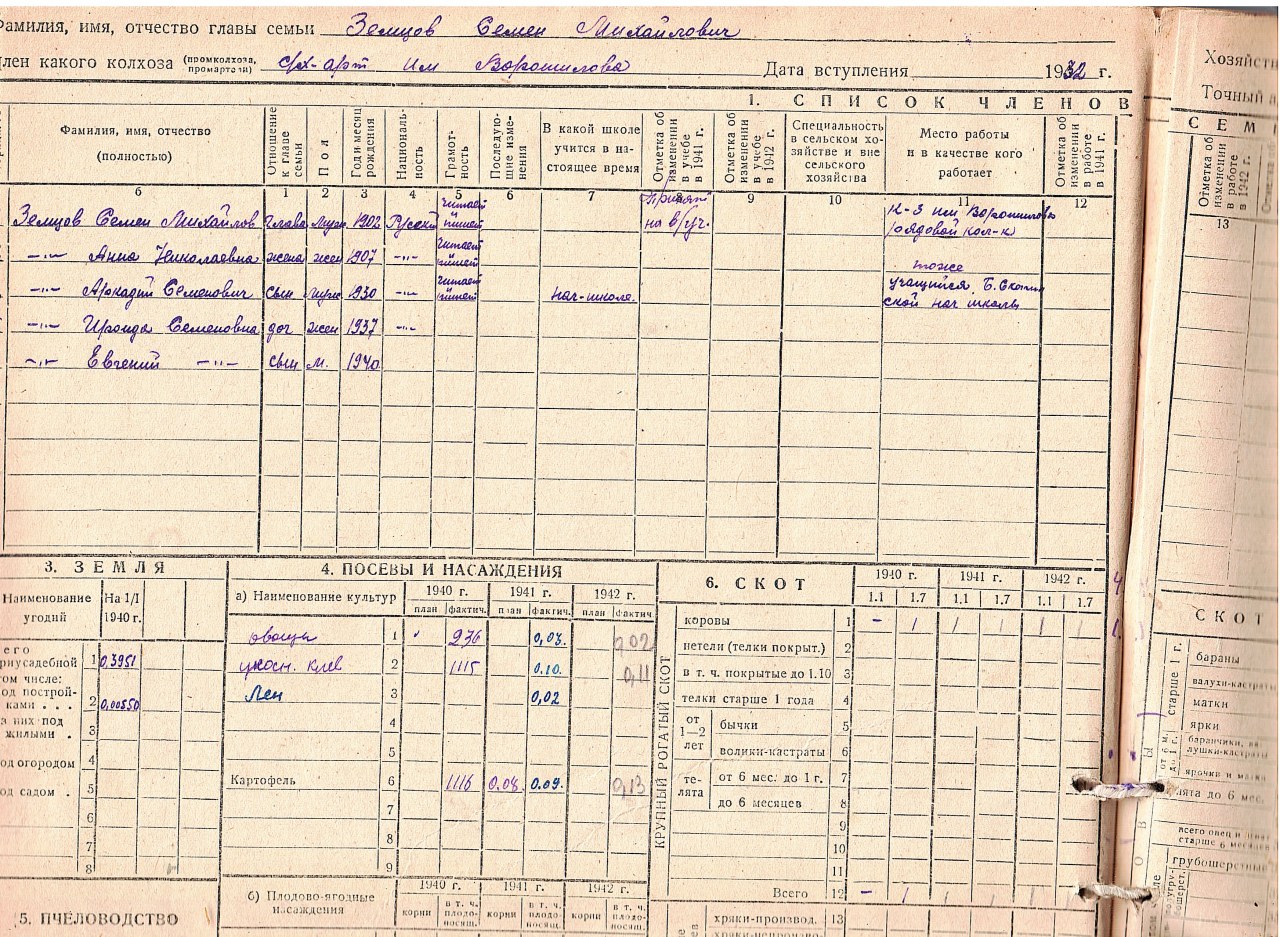 Фамилия, имя, отчество главы семьи Земцов Семен Михайлович
лен какого колхоза (промколхоза, промартели) с/х-арт им Ворошилова Дата вступления 1932 г.
1. СПИСОК ЧЛЕНОВ
Фамилия, имя, отчество (полностью)
Отношение к главе семьи
Пол
Год и месяц рождения
Националь-ность
Грамот-ность
Последую-щие изме-нения
В какой школе учится в на-стоящее время
Отметка об изменении в учебе в 1941 г.
Отметка об изменении в учебе в 1942 г.
Специальность в сельском хо-зяйстве и вне сельского хозяйства
Место работы и в качестве кого работает
Отметка об изменении в работе в 1941 г.
б 1 2 3 4 5 6 7 8 9 10 11 12
Земцов Семен Михайлов глава муж 1902 Русский читает пишет Принят на в/уч. К-з им Ворошилова рядовой кол-к
–„– Анна Николаевна жена жен 1907 –„– читает пишет тоже
–„– Аркадий Семенович сын муж 1930 –„– читает пишет нач-школа. учащийся Б. ской нач школы
–„– Ираида Семеновна доч жен 1937 –„–
–„– Евгений –„– сын м. 1940
3. ЗЕМЛЯ
Наименование угодий На 1/I 1940 г.
его
риусадебной 1 0,3951
ом числе:
од построй-ками . . . 2 0,00550
з них под жилыми . 3
од огородом 4
од садом . 5
6
7
8
5. ПЧЕЛОВОДСТВО
4. ПОСЕВЫ И НАСАЖДЕНИЯ
а) Наименование культур 1940 г. 1941 г. 1942 г.
план фактич. план фактич. план фактич.
овощи 1 936 0,03. 0,02
укосн. клев 2 1115 0.10. 0,11
Лен 3 0,02
4
5
Картофель 6 1116 0.08. 0.09. 0,13
7
8
9
б) Плодово-ягодные насаждения 1940 г. 1941 г. 1942 г.
корни в т. ч. плодо-носящ. корни в т. ч. плодо-носящ. корни в т. ч. плодо-носящ.
6. СКОТ 1940 г. 1941 г. 1942 г.
1.1 1.7 1.1 1.7 1.1 1.7
КРУПНЫЙ РОГАТЫЙ СКОТ
коровы 1 – 1 1 1 1 1
нетели (телки покрыт.) 2
в т. ч. покрытые до 1.10 3
телки старше 1 года 4
от 1—2 лет бычки 5
волики-кастраты 6
те-лята от 6 мес. до 1 г. 7
до 6 месяцев 8
9
10
11
Всего 12 – 1 1 1 1 1
хряки-производ. 13
Хозяйст
Точный а
СЕМ
Отметка об изменении в работе в 1942 г.
13
СКОТ
старше 1 г.
бараны
валухи-кастраты
матки
ярки
от 6 м. до 1 г.
ярочки и матки
лята до 6 мес.
старше 6 месяцев
грубошерстн